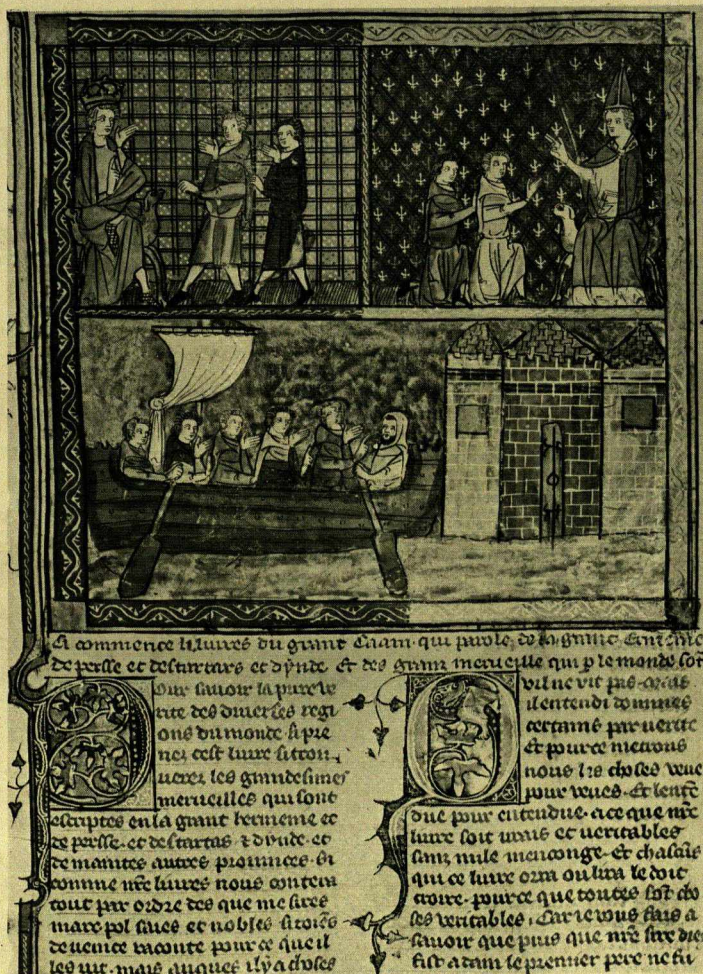 Ci commence li livres du graunt Caam qui parole de la graunt Ermenie
de persse et des tartars et dynde Et des granz merueille qui p le monde sont
Pour sauoir la pure ve
rite des diuerses regi
ons du monde si pre
nez cest liure si trou
uerez les grandesimes
merueilles qui sont
escriptes en la grant hermenie et
de persse et des tartars & dynde et
de maintes autres prouinces Si
comme nre liures nous contera
tout par ordre des que me sires
marc pol saiues et nobles sitoiens
de uenice raconte pour ce que il
les uit mais auques il y a choses
quil ne vit pas
il entendi dommes
certains par uerite
Et pource metrons
nous les choses veue
pour veues Et lente
due pour entendue a ce que nre
liure soit urais et ueritables
sanz nule menconge Et chascuns
qui ce liure orra ou lira le doit
croire pource que toutes sont cho
ses veritables Car ie vous fais a
sauoir que puis que nre sire dies
fist adam le premier pere ne fu